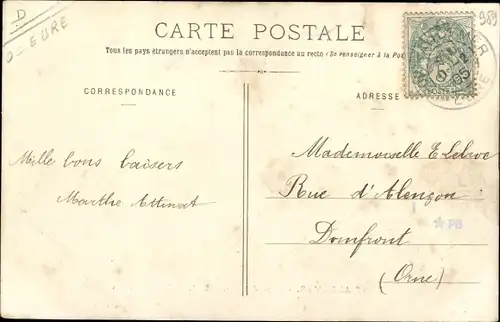 D
EURE
989
CARTE POSTALE
Tous les pays étrangers n'acceptent pas la correspondance au recto (Se renseigner à la Pos
CORRESPONDANCE
ADRESSE
Mille bons baisers
Marthe Attinat
Mademoiselle E Lelieve
Rue d'Alençon
Domfront
(Orne)
PB